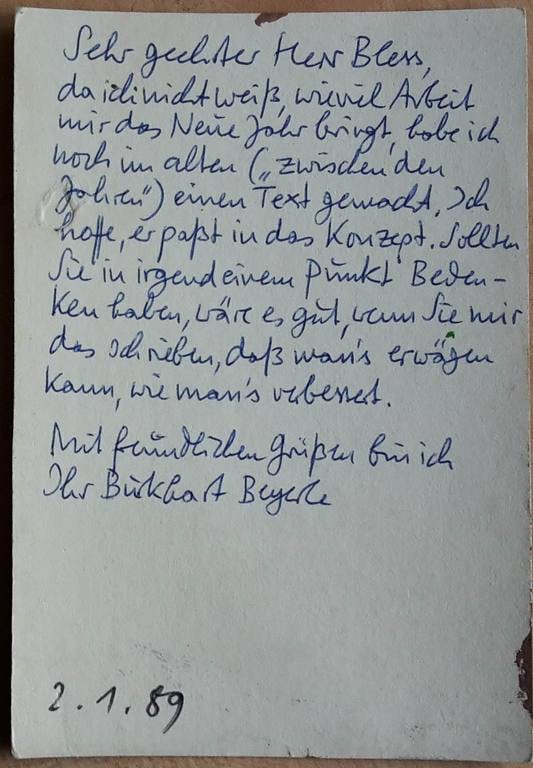 Sehr geehrter Herr Bless,
da ich nicht weiß, wieviel Arbeit
mir das Neue Jahr bringt, habe ich
noch im alten („zwischen den
Jahren") einen Text gemacht. Ich
hoffe, er paßt in das Konzept. Sollten
Sie in irgendeinem Punkt Beden-
ken haben, wäre es gut, wenn Sie mir
das schrieben, daß man's erwägen
kann, wie man's verbessert.
Mit freundlichen Grüßen bin ich
Ihr Burkhart Beyerle
2.1.89